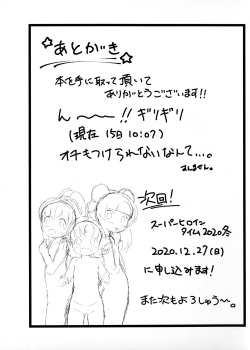 ☆あとがき☆
本を手に取って頂いて
ありがとうございます!!
ん〜〜!!ギリギリ
(現在 15日 10:07)
オチもつけられないなんて…。
すみません。
次回!
スーパーヒロイン
タイム2020冬
2020.12.27(日)
に申し込みます!
また次もよろしゅう〜。